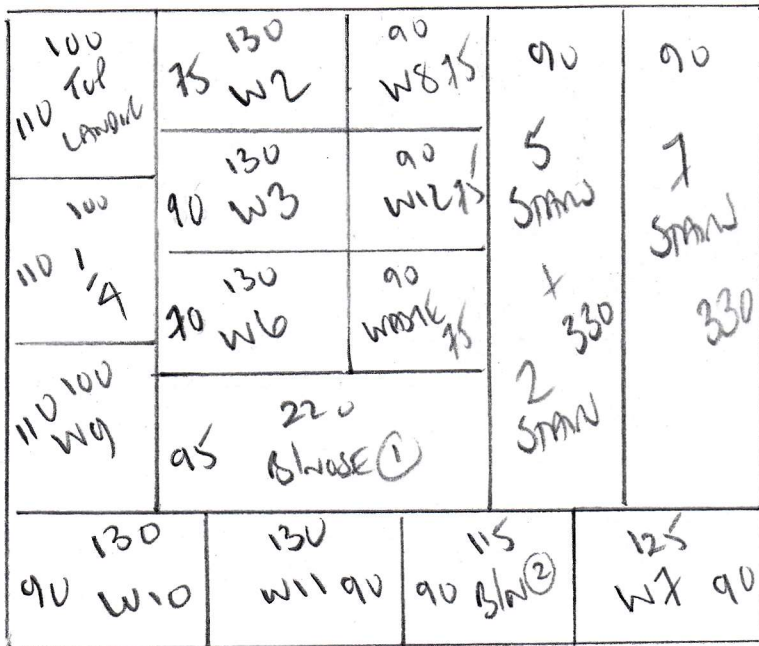 100
Top
110 LANDING
100
110 1/4
110 100
W9
130
75 W2
90
W8 75
130
90 W3
90
W12 75
130
70 W6
90
WASTE 75
220
95 B/NOSE 1
90
5
STAIRS
+
330
2
STAIRS
90
7
STAIRS
330
130
90 W10
130
W11 90
115
90 B/N 2
125
W7 90